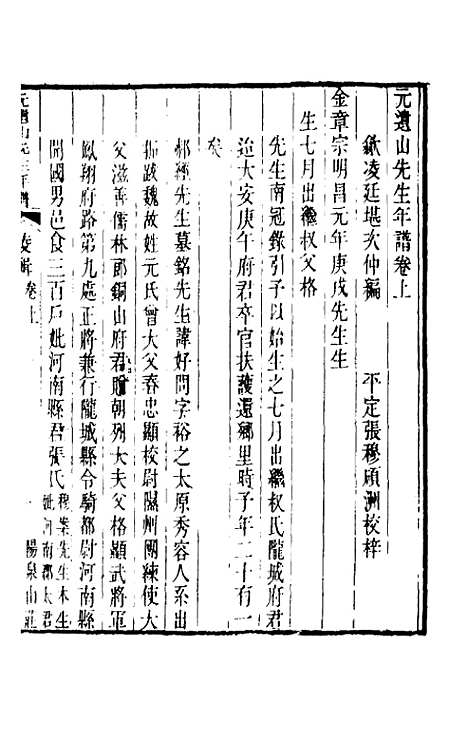 元遺山先生年譜卷上
歙凌廷堪次仲編　平定張穆碩洲校梓
金章宗明昌元年庚戌先生生
生七月出繼叔父格
先生南冠錄引予以始生之七月出繼叔氏隴城府君
迨大安庚午府君卒官扶護還鄉里時予年二十有一
矣
郝經先生墓銘先生諱好問字裕之太原秀容人系出
拓跋魏故姓元氏曾大父春忠顯校尉隰州團練使大
父滋善儒林郎銅山府君贈朝列大夫父格顯武將軍
鳳翔府路第九處正將兼行隴城縣令騎都尉河南縣
開國男邑食三百戶妣河南縣君張氏穆案先生本生
妣河南郡太君
元遺山先生年譜　凌譜卷上　一　陽泉山莊